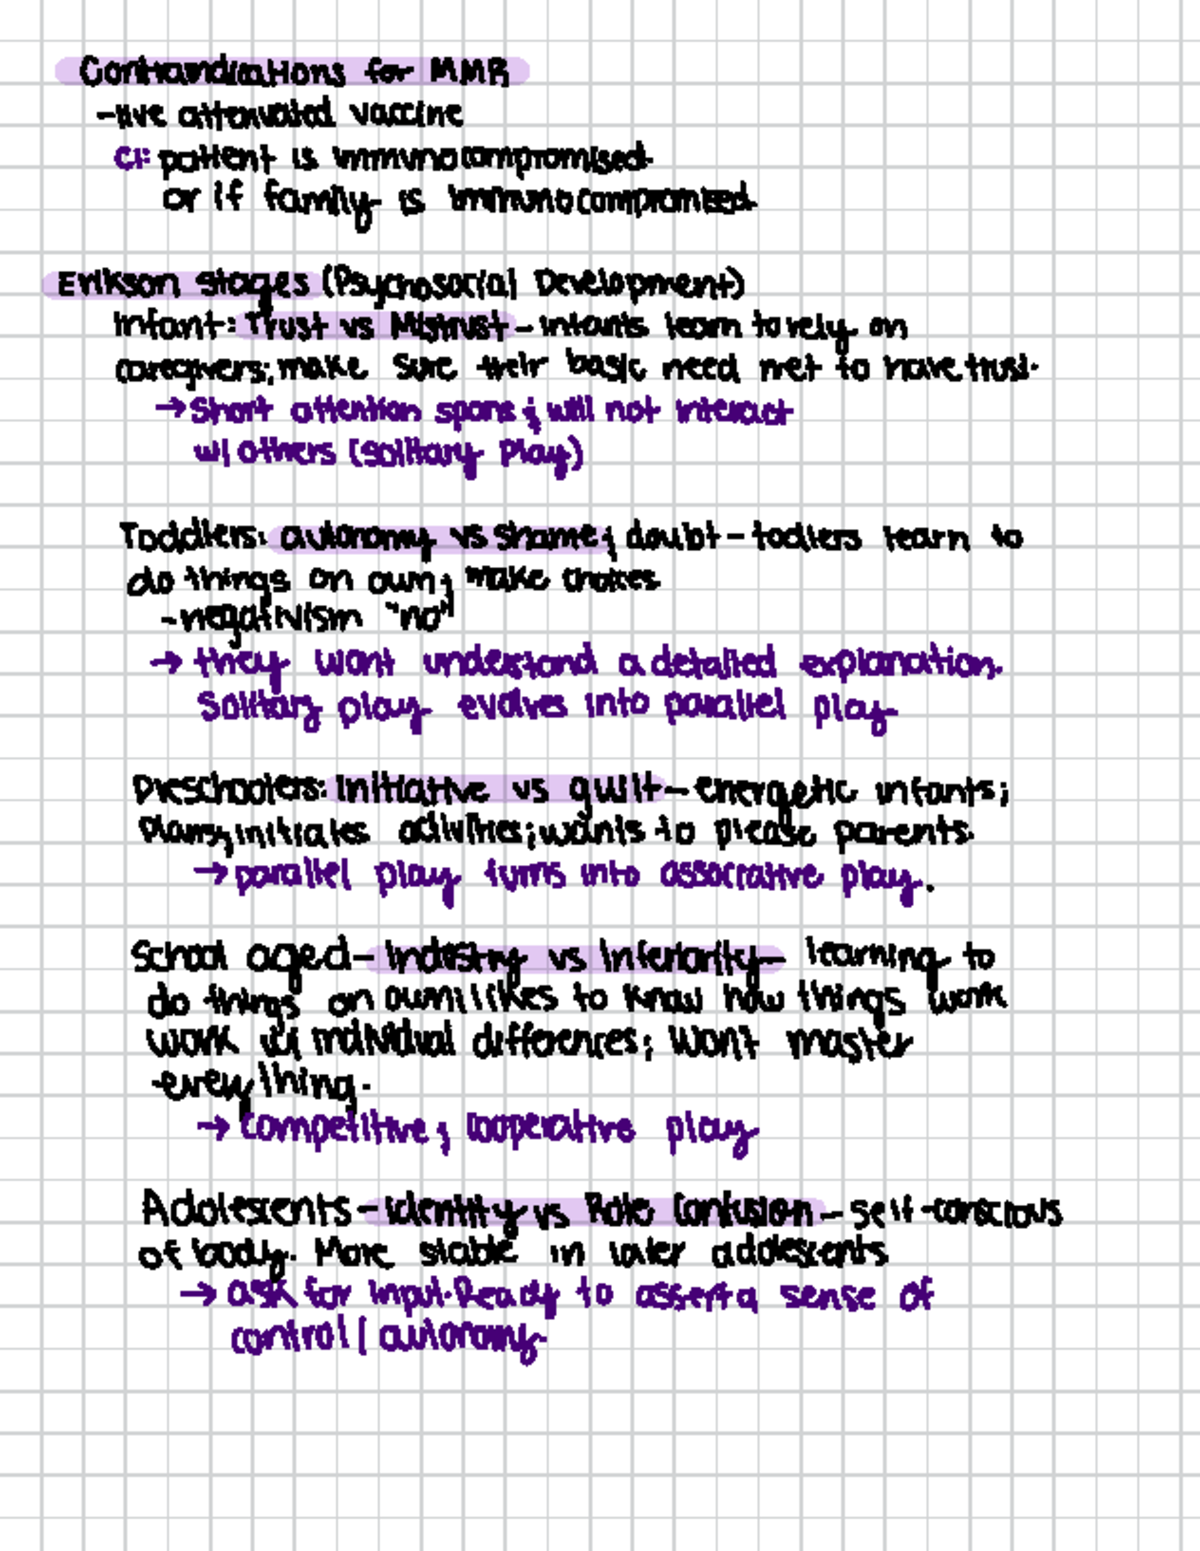 Contraindications for MMR
-live attenuated vaccine
CI: patient is immunocompromised
or if family is immunocompromised
Erikson stages (Psychosocial Development)
Infant: Trust vs Mistrust - infants learn to rely on
caregivers; make sure their basic need met to have trust.
→ Short attention spans & will not interact
w/ others (solitary play)
Toddlers: autonomy vs shame & doubt - todlers learn to
do things on own; make choices
-negativism "no"
→ they wont understand a detailed explanation.
Solitary play evolves into parallel play
Preschoolers: Initiative vs guilt - energetic infants;
plans, initiates activities; wants to please parents.
→ parallel play turns into associative play.
School aged - Industry vs Inferiority - learning to
do things on own likes to know how things work
work w/ individual differences; Won't master
everything.
→ competitive & cooperative play
Adolescents - identity vs Role Confusion - self-conscious
of body. More stable in later adolescents
→ ask for input. Ready to assert a sense of
control / autonomy